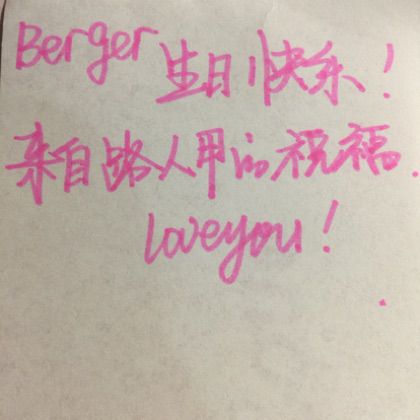 Berger 生日快乐！
来自路人甲的祝福.
love you！